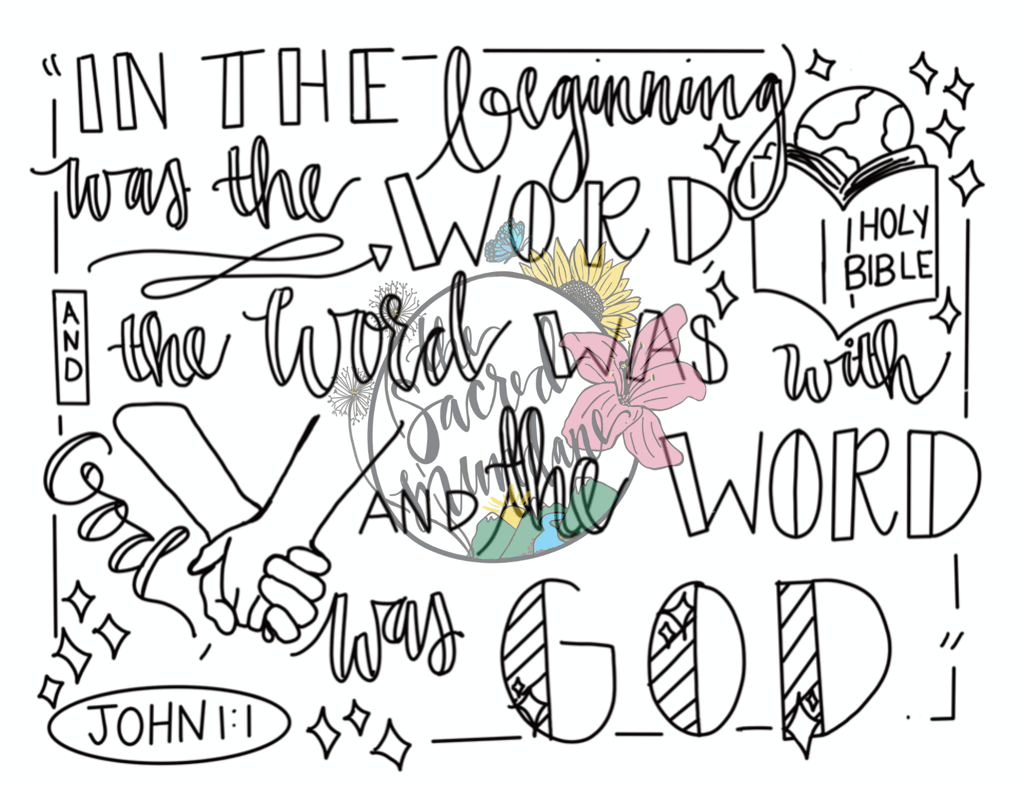 “IN THE beginning
was the WORD,
HOLY
BIBLE
AND the Word WAS with
God, AND the WORD
was GOD”.
JOHN 1:1
the
Sacred
Mundane